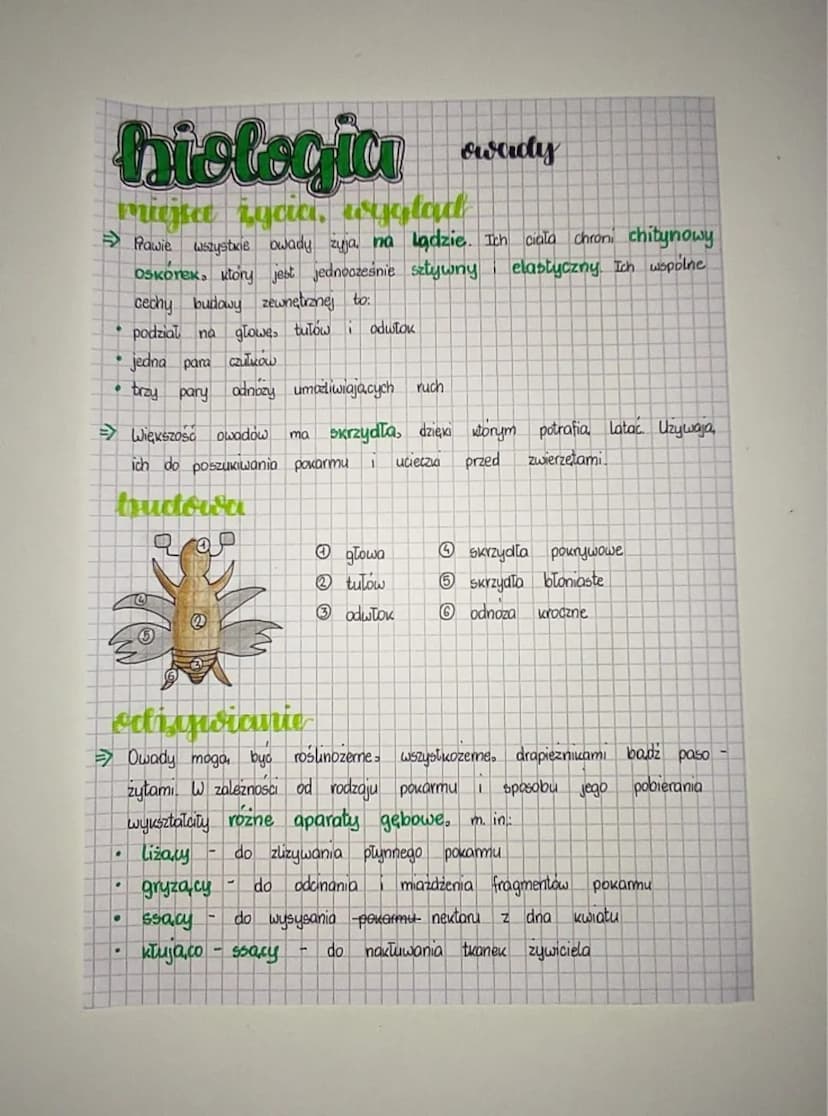 biologia
owady
miejsce życia, wygląd
⇒ Prawie wszystkie owady żyją na lądzie. Ich ciała chroni chitynowy
oskórek, który jest jednocześnie sztywny i elastyczny. Ich wspólne
cechy budowy zewnętrznej to:
• podział na głowę, tułów i odwłok
• jedna para czułków
• trzy pary odnóży umożliwiających ruch
⇒ Większość owadów ma skrzydła, dzięki którym potrafią latać. Używają
ich do poszukiwania pokarmu i ucieczki przed zwierzętami.
budowa
① głowa
② tułów
③ odwłok
④ skrzydła pokrywowe
⑤ skrzydła błoniaste
⑥ odnóża kroczne
1
4
2
5
3
6
odżywianie
⇒ Owady mogą być roślinożerne, wszystkożerne, drapieżnikami bądź paso -
żytami. W zależności od rodzaju pokarmu i sposobu jego pobierania
wykształciły różne aparaty gębowe, m. in.:
• liżący - do zlizywania płynnego pokarmu
• gryzący - do odcinania i miażdżenia fragmentów pokarmu
• ssący - do wysysania pokarmu nektaru z dna kwiatu
• kłująco - ssący - do nakłuwania tkanek żywiciela